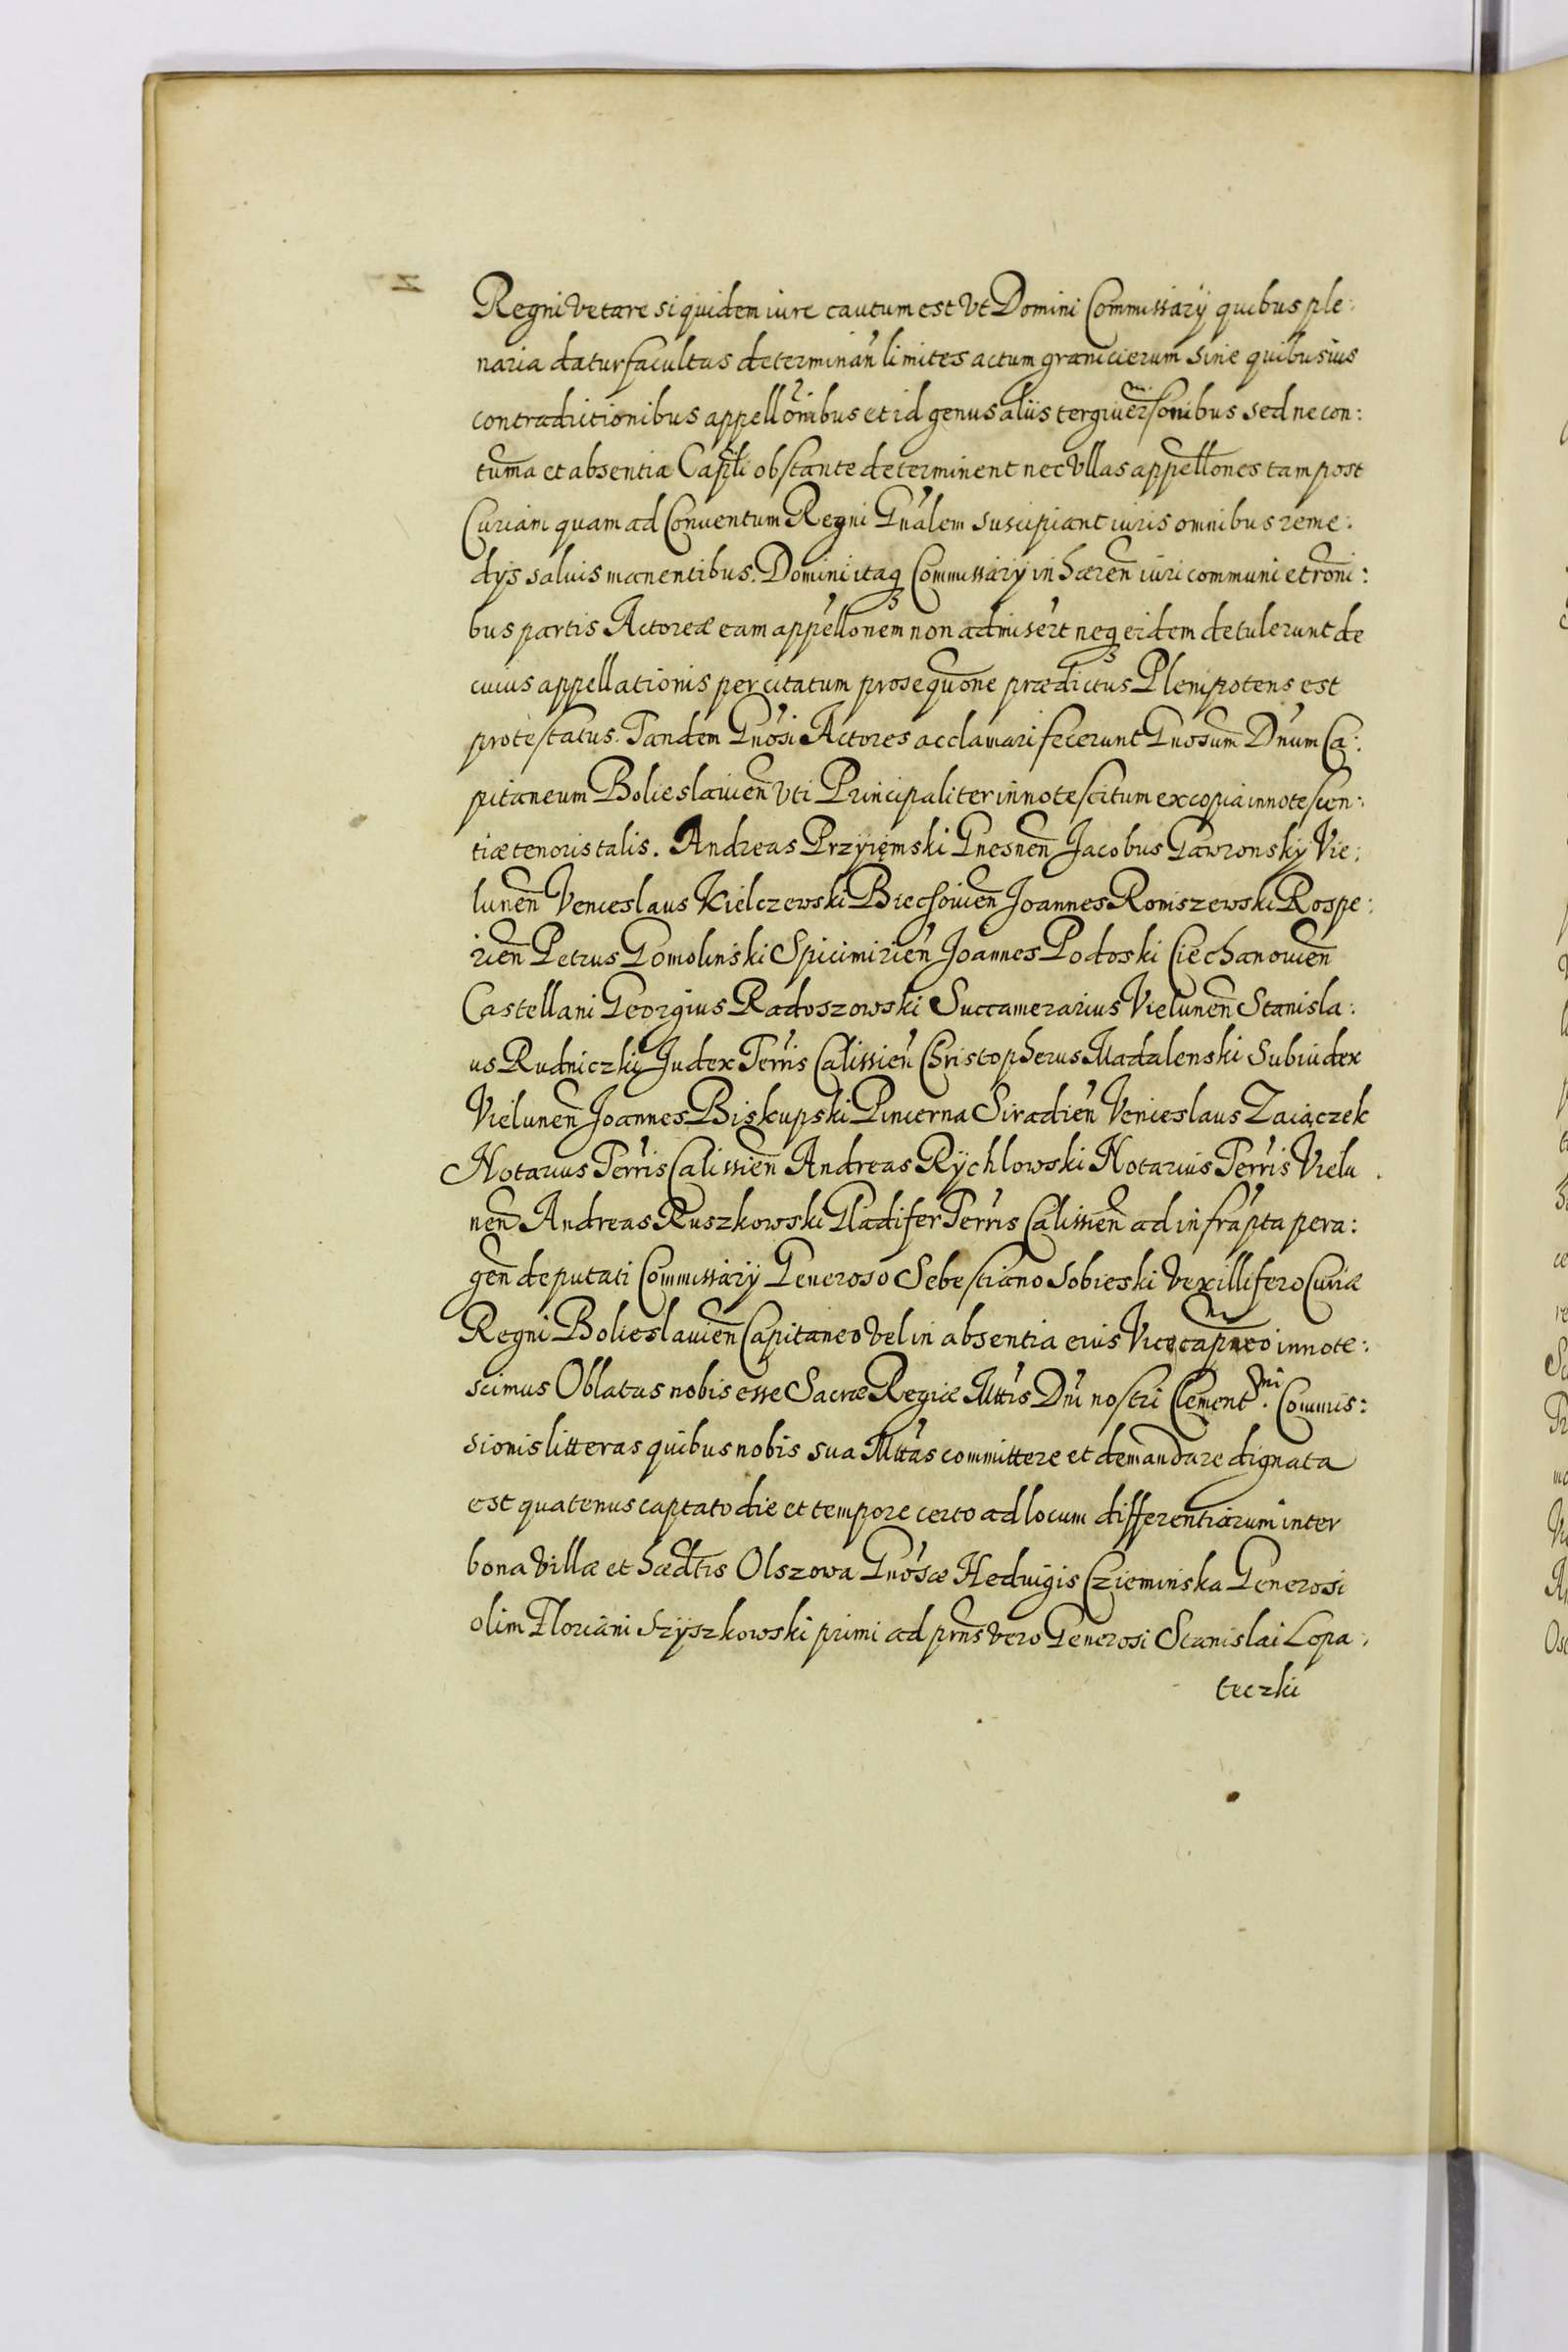 Regni vetare siquidem iure cautum est Vt Domini Commissarÿ quibus ple:
naria datur facultas determinan̄ limites actum granicierum sine quibusius
contradictionibus appellōnibus et id genus aliis tergiuersōnibus sed ne con:
tuma et absentia Capłi obstante determinent nec Vllas appellōnes tam post
Curiam quam ad Conuentum Regni Gnālem suscipiant iuris omnibus reme:
dÿs saluis manentibus. Domini itaq Commissarÿ inhæren̄ iuri communi et rōni:
bus partis Actoreæ eam appellōnem non admisert neq eidem detulerunt de
cuius appellationis per citatum prosequōne prædictus Plenipotens est
protestatus. Tandem Gnōsi Actores acclamari fecerunt Gnosum Dnum Ca:
pitaneum Bolieslauien̄ Vti Principaliter innotescitum ex copia innotescen:
tiæ tenoris talis. Andreas Przyięmski Gnesnen̄ Jacobus Gawronskÿ Vie:
lunen̄ Venceslaus Kielczewski Biechouien̄ Joannes Roniszewski Rospe:
rien̄ Petrus Gomolinski Spicimirien̄ Joannes Podoski Ciechanouien̄
Castellani Georgius Radoszowski Succamerarius Vielunen̄ Stanisla:
us Rudniczkÿ Judex Terrīs Calissien̄ Christopherus Madalenski Subiudex
Vielunen̄ Joannes Biskupski Pincerna Siradien̄ Venceslaus Zaiączek
Notarius Terrīs Calissien̄ Andreas Rÿchlowski Notarius Terrīs Vielu
nen̄ Andreas Ruszkowski Gladifer Terrīs Calissien̄ ad infrapta pera:
gen̄ deputati Commissarÿ Generoso Sebestiano Sobieski Vexillifero Curiæ
Regni Bolieslauien̄ Capitaneo Vel in absentia eius Vicecapneo innote:
scimus Oblatas nobis esse Sacræ Regiæ Mttīs Dnī nostri Clement. Commis:
sionis litteras quibus nobis sua Mttās committere et demandare dignata
est quatenus captato die et tempore certo ad locum differentiarum inter
bona Villæ et hædtīs Olszowa Gnōsæ Hedwigis Czieminska Generosi
olim Floriani Szÿszkowski primi ad prns vero Generosi Stanislai Lopa:
teczki